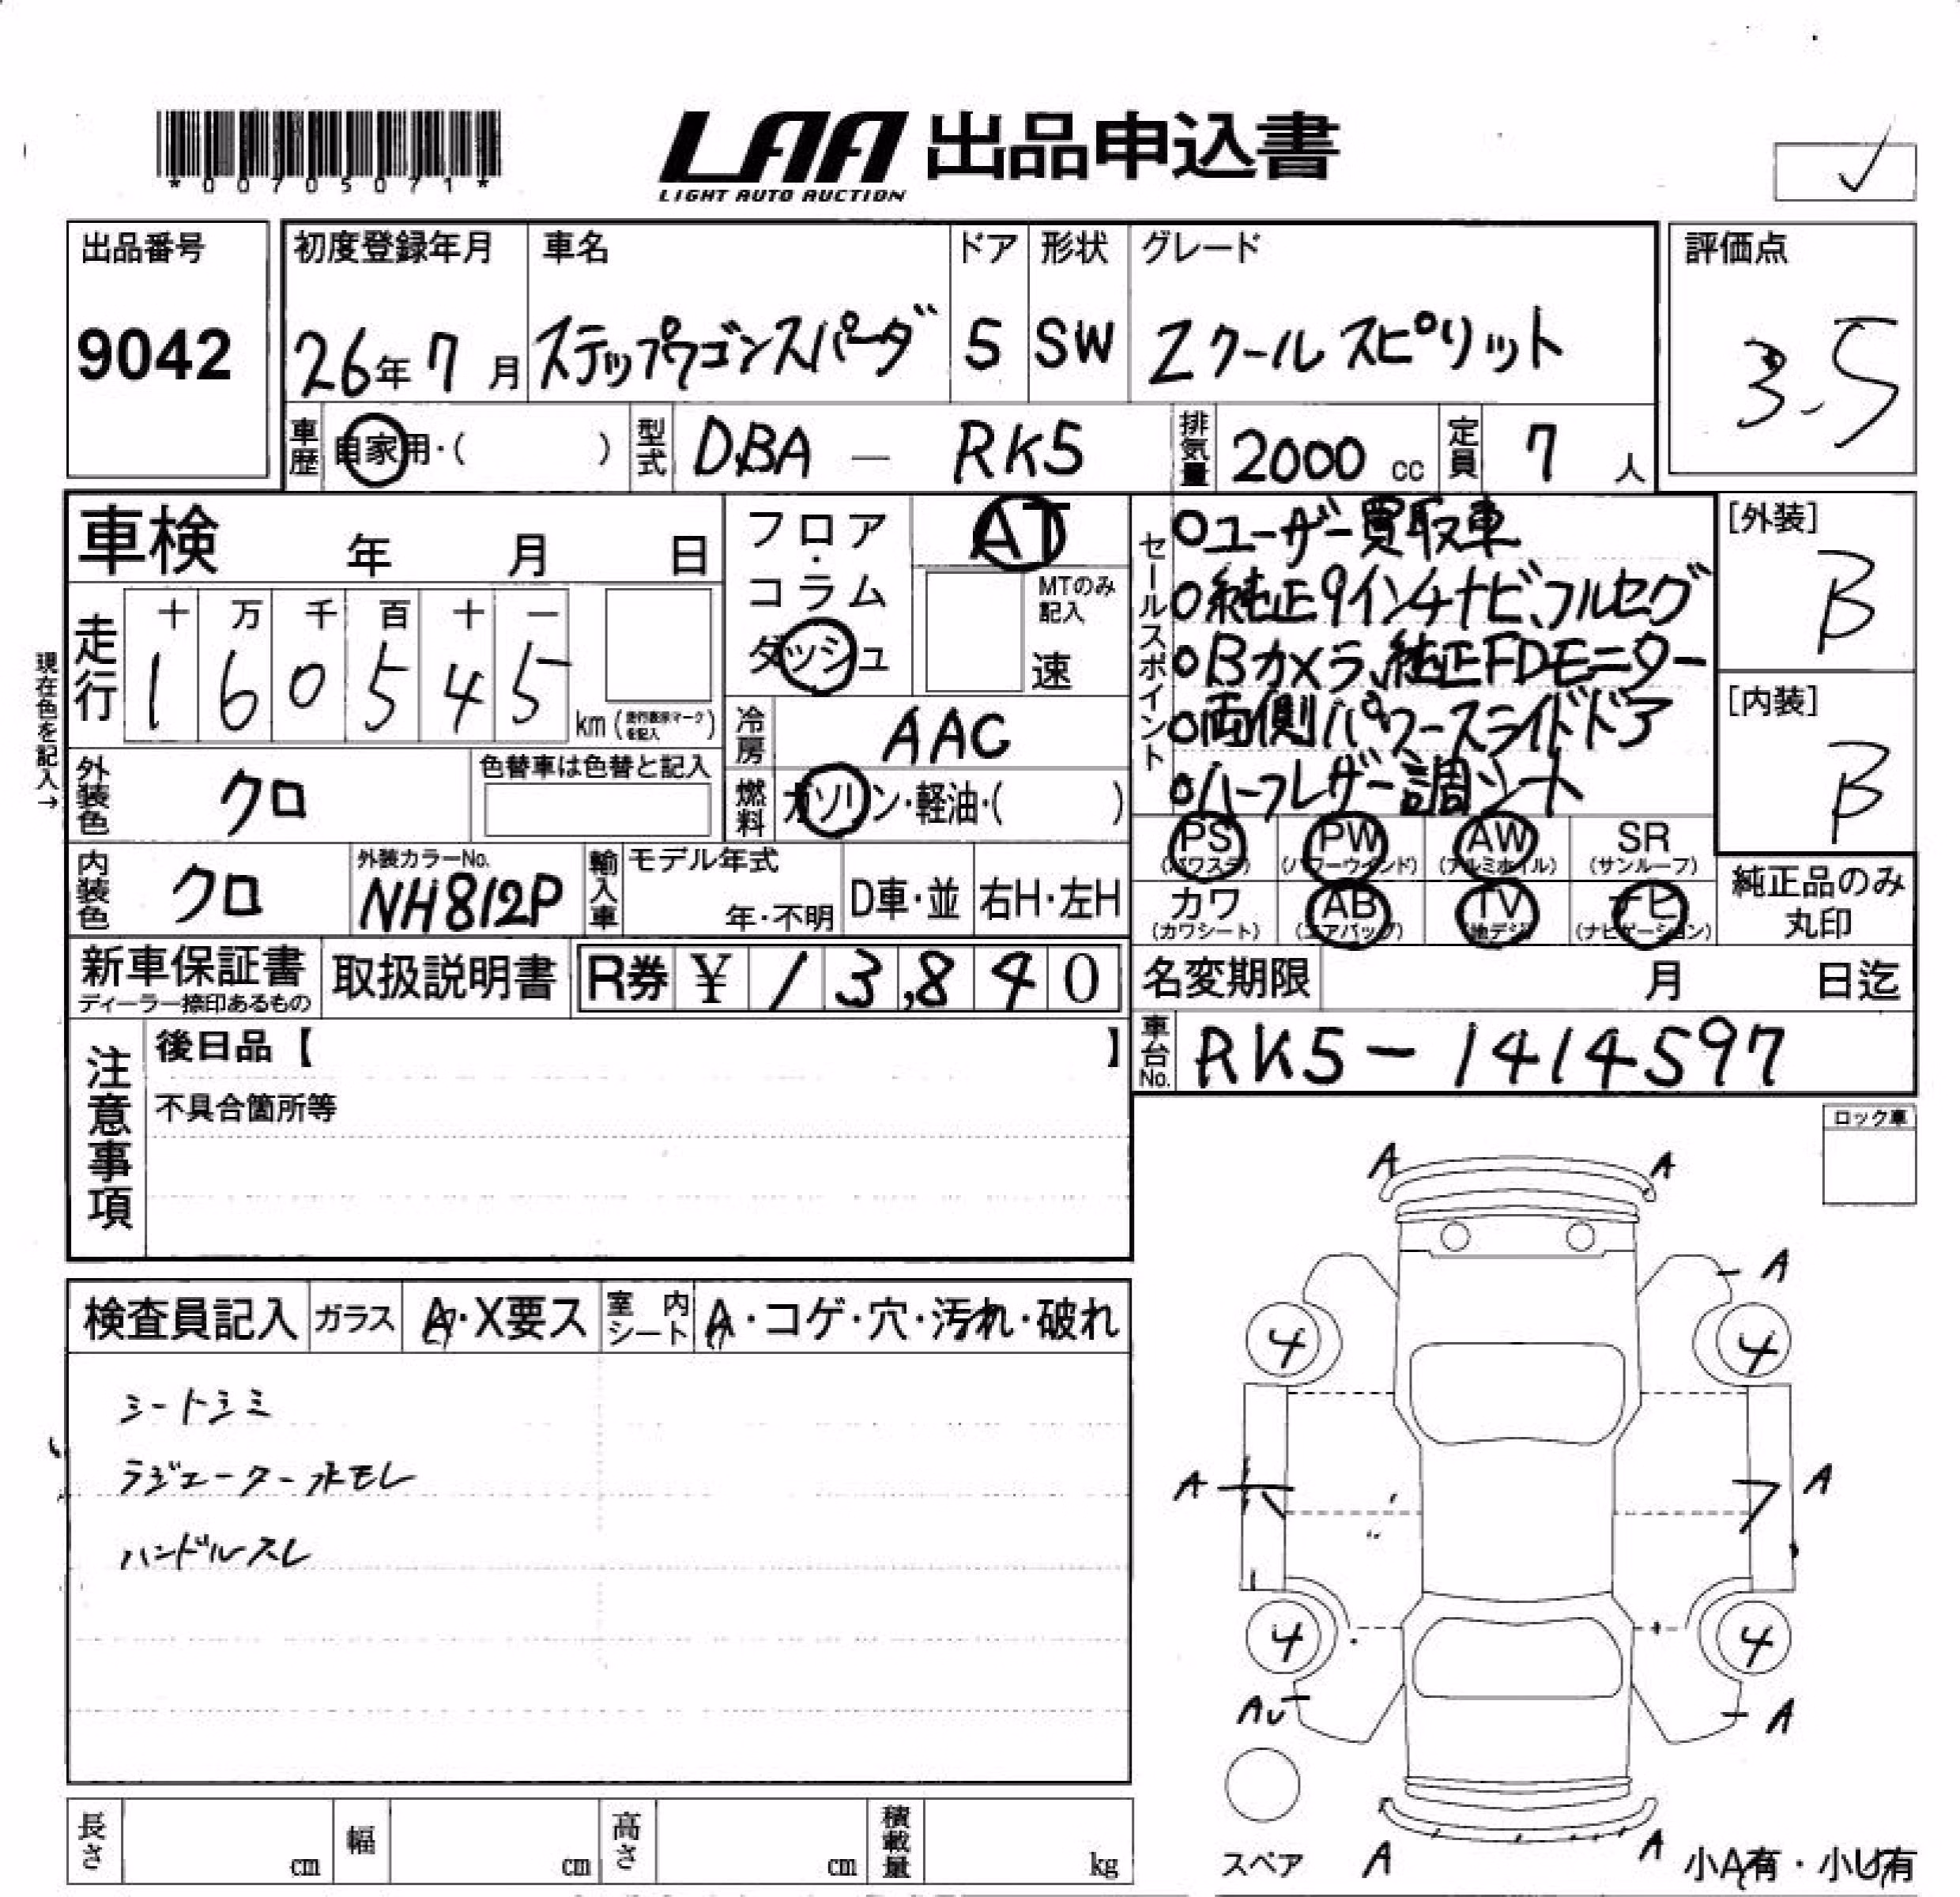 *00705071*
LAA 出品申込書
LIGHT AUTO AUCTION
出品番号
9042
初度登録年月
26年7月
車名
ステップワゴンスパーダ
ドア
5
形状
SW
グレード
Zクールスピリット
評価点
3.5
車歴 自家用・( )
型式 DBA - RK5
排気量 2000 cc
定員 7 人
車検 年 月 日
フロア・コラム
ダッシュ
AT
MTのみ記入
速
セールスポイント
○ユーザー買取車
○純正9インチナビ、フルセグ
○Bカメラ、純正FDモニター
○両側パワースライドドア
○ハーフレザー調シート
[外装]
B
[内装]
B
現在色を記入→
走行
十 万 千 百 十 一
1 6 0 5 4 5
km (走行表示マークを記入)
冷房 AAC
燃料 ガソリン・軽油・( )
外装色 クロ
色替車は色替と記入
PS (パワステ)
PW (パワーウインド)
AW (アルミホイル)
SR (サンルーフ)
カワ (カワシート)
AB (エアバッグ)
TV (地デジ)
ナビ (ナビゲーション)
純正品のみ丸印
内装色 クロ
外装カラーNo.
NH812P
輸入車
モデル年式
年・不明
D車・並
右H・左H
新車保証書
ディーラー捺印あるもの
取扱説明書
R券 ¥ 13,840
名変期限 月 日迄
車台No. RK5-1414597
注意事項
後日品【 】
不具合箇所等
ロック車
検査員記入
ガラス A・X要ス
室内シート A・コゲ・穴・汚れ・破れ
シートシミ
ラジエーター水モレ
ハンドルスレ
A A
A
4 4
A A
4 4
AU A
スペア
A A
小A有・小U有
長さ cm
幅 cm
高さ cm
積載量 kg